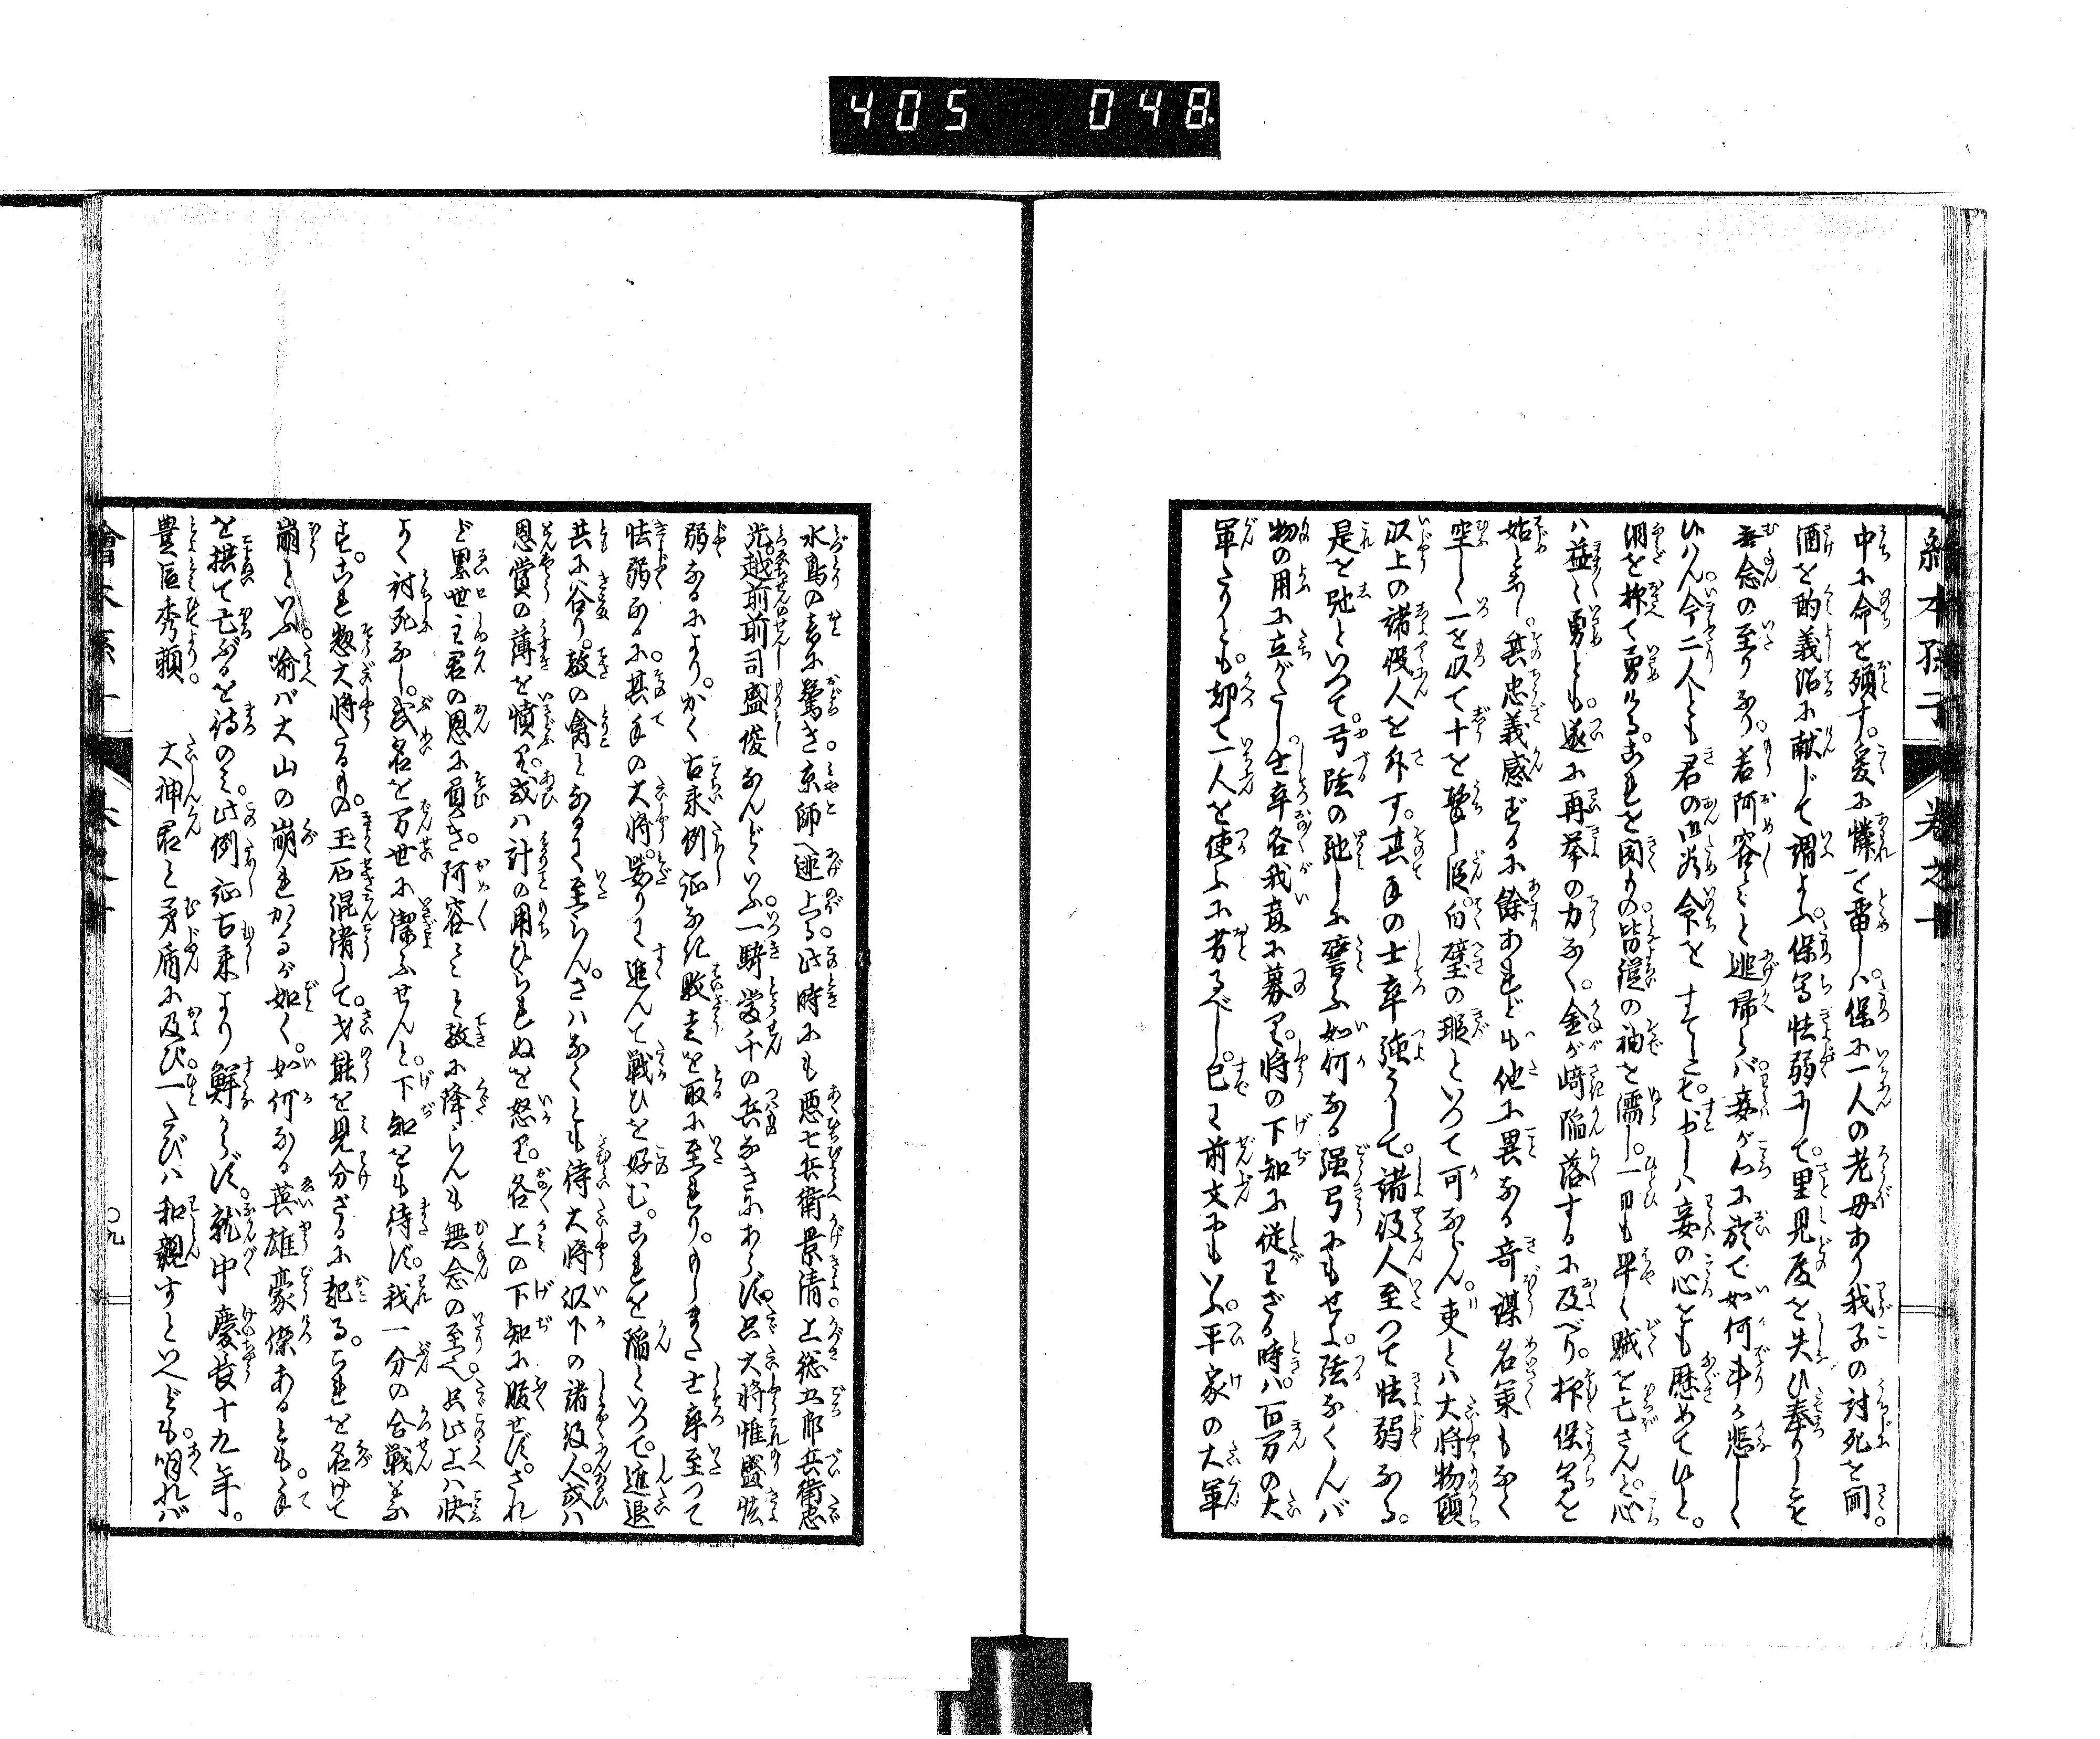 405 048
繪本孫子 卷之十
中に命を殞す。爰に憐を畱しハ保に一人の老母あり我子の討死を聞
酒を酌義治に献じて謂よふ。保等怯弱にして。里見殿を失ひ奉りしこそ
無念の至りなり。若阿容〻〻と迯帰らバ妾が心に於て如何斗り悲しく
候はん今二人とも君の御為命をすてしこそ。少しハ妾の心をも慰めて候と。
泪を抑て勇ける。これを聞もの皆鎧の袖を濡し。一日も早く賊を亡さんと。心
ハ益〻勇とも。遂に再挙の力なく。金が﨑陥落するに及べり。抑保等を
始とし。其忠義感ずるに餘あれども他に異なる奇謀名策もなく
空しく一を以て十を撃し段。白璧の瑕といつて可ならん。吏とハ大将物頭
以上の諸役人を斥す。其手の士卒強うして。諸役人至つて怯弱なる。
是を弛といつて。弓弦の弛しに譬ふ如何なる强弓にもせよ。弦なくんバ
物の用に立がたし。士卒各我意に募り。将の下知に従はざる時ハ。百万の大
軍たりとも。却て一人を使ふに劣るべし。已に前文にもいふ。平家の大軍
水鳥の音に驚き。京師へ迯上る。此時にも悪七兵衛景清上総五郎兵衛忠
光。越前前司盛俊なんどゝいふ。一騎當千の兵なきにあらず。只大将惟盛怯
弱なるによりて。かく古来例証なき敗走を取に至れり。もしまた士卒至つて
怯弱なるに。其手の大将。妄りに進んで戦ひを好む。これを陥といつて。進退
共に谷り。敵の禽となるに至らん。さハなくとも侍大将以下の諸役人。或ハ
恩賞の薄を憤り。或ハ計の用ひられぬを怒り。各上の下知に服せず。され
ど累世主君の恩に負き。阿容〻〻と敵に降らんも無念の至り。只此上ハ快
よく討死なし。武名を万世に潔ふせんと。下知をも待ず。我一分の合戦をな
す。これ惣大将たるもの。玉石混淆して。才能を見分ざるに起る。これを名けて
崩といふ。喩バ大山の崩れかゝるが如く。如何なる英雄豪傑あるとも。手
を拱て亡ぶるを待のミ。此例証古来より鮮からず。就中慶長十九年。
豊臣秀頼。 大神君と矛盾に及び。一たびハ和親すといへども。明れバ
繪本孫子 卷之十 〇九